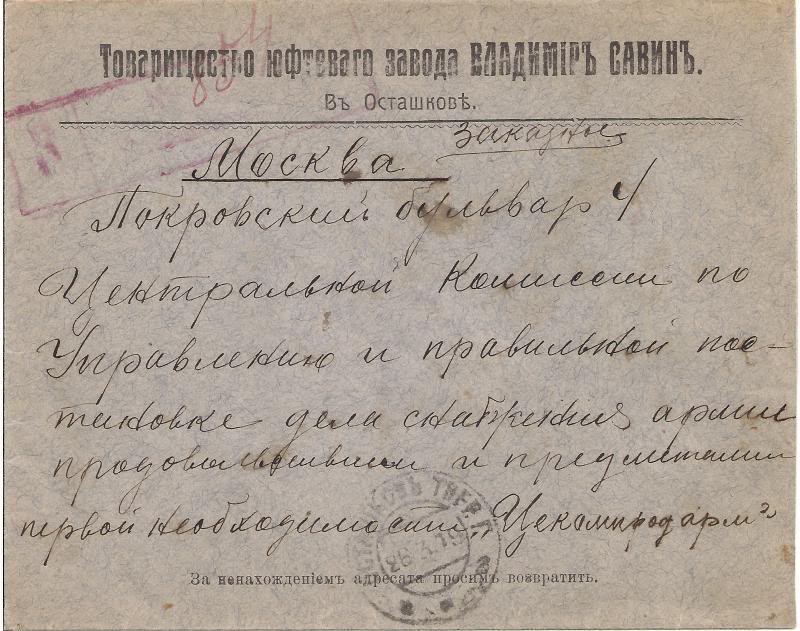 Товарищество юфтеваго завода ВЛАДИМІРЪ САВИНЪ.
Въ Осташковѣ.
Заказное
Москва
Покровский бульвар 4
Центральной Комиссии по
Управлению и правильной пос-
тановке дела снабжения армии
продовольствием и предметами
первой необходимости „Цекомпродарм"
ОСТАШКОВЪ ТВЕР. Г.
26.3.19
За ненахожденіемъ адресата просимъ возвратить.